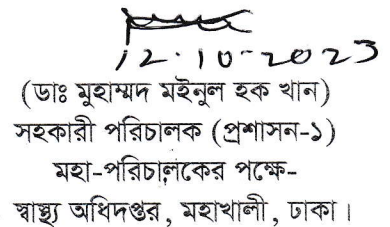 12.10-2023
(ডাঃ মুহাম্মদ মইনুল হক খান)
সহকারী পরিচালক (প্রশাসন-১)
মহা-পরিচালকের পক্ষে-
স্বাস্থ্য অধিদপ্তর, মহাখালী, ঢাকা।